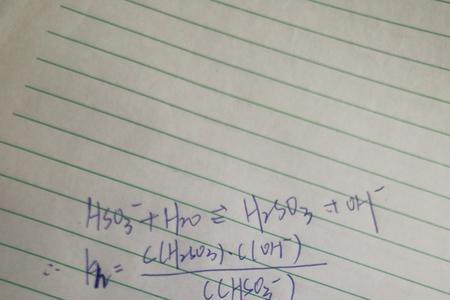 HSO₃⁻ + H₂O ⇌ H₂SO₃ + OH⁻
∴ Kh = c(H₂SO₃)·c(OH⁻)
c(HSO₃⁻)